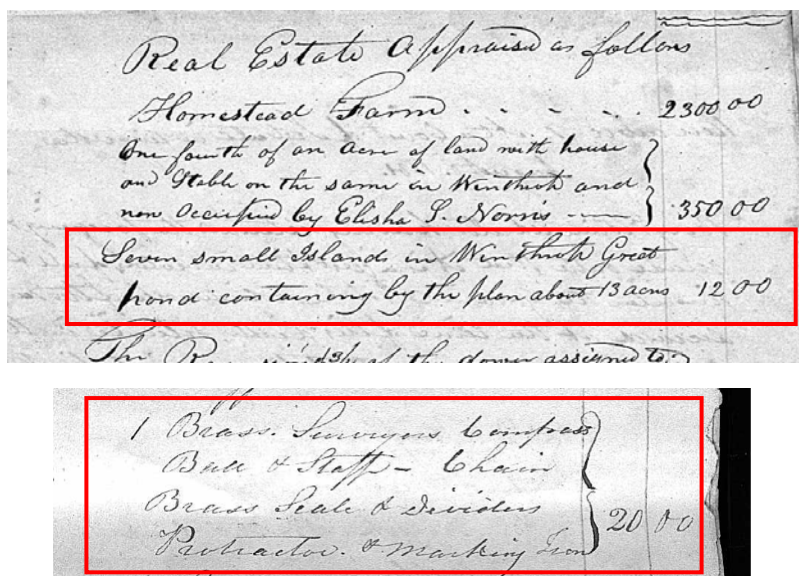 Real Estate Appraisd as follows
Homestead Farm - - - - 2300 00
One fourth of an Acre of land with house
and Stable on the same in Winthrop and
now Occupied by Elisha S. Norris — 350 00
Seven small Islands in Winthrop Great
pond containing by the plan about 13 acres 12 00
The of the dower assigned to
1 Brass Surveyors Compass
Ball & Staff - Chain
Brass Scale & Dividers
20 00
Protractor. & Marking Iron